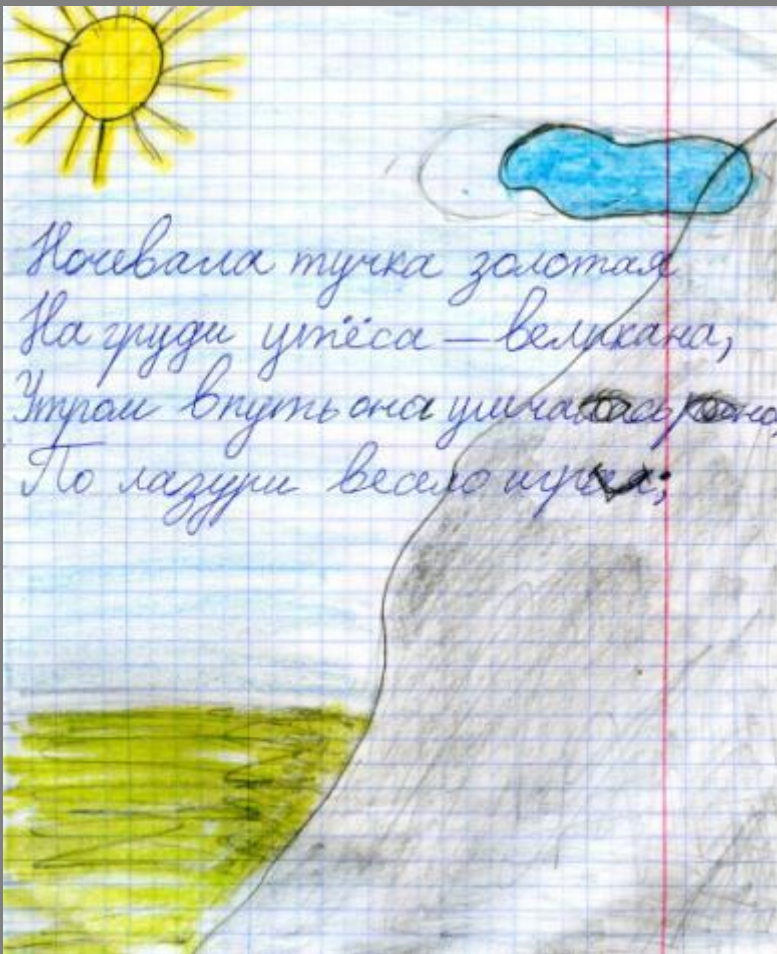 Ночевала тучка золотая
На груди утёса — великана,
Утром в путь она умчалась рано,
По лазури весело играя;